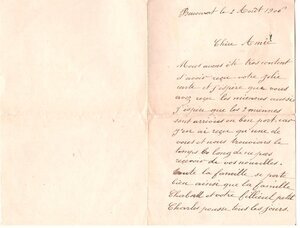 le 2 Août 1906
Chère Amie
Nous avons été très content
d'avoir reçu votre jolie
carte et j'espère que vous
avez reçu les miennes aussi
j'espère que les 2 miennes
sont arrivées en bon port. car
j'en ai reçu qu'une de
vous et nous trouvons le
temps long de ne pas
recevoir de vos nouvelles.
toute la famille se porte
bien ainsi que la famille
et votre filleul petit
Charles pousse tous les jours.